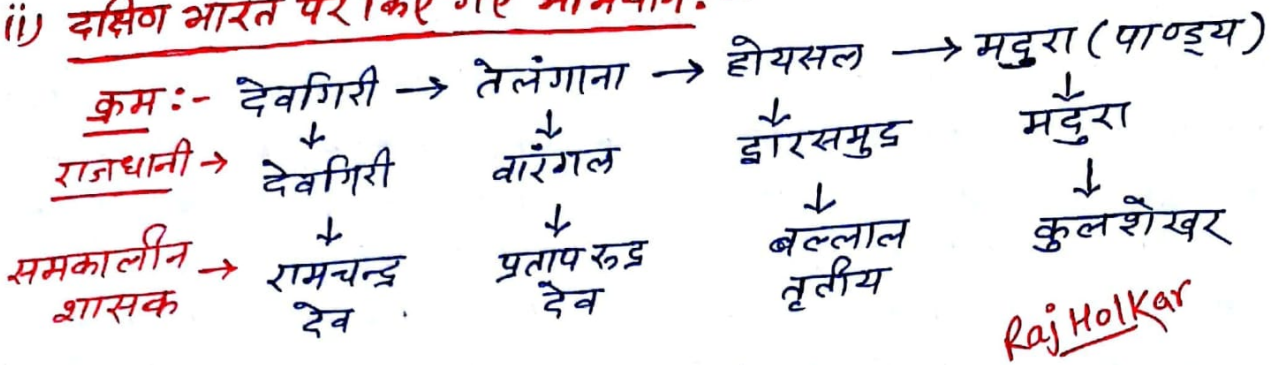 ii) दक्षिण भारत पर किए गए अभियान:
क्रम :- देवगिरी → तेलंगाना → होयसल → मदुरा (पाण्ड्य)
राजधानी → देवगिरी वारंगल द्वारसमुद्र मदुरा
समकालीन शासक → रामचन्द्र देव प्रताप रुद्र देव बल्लाल तृतीय कुलशेखर
Raj Holkar